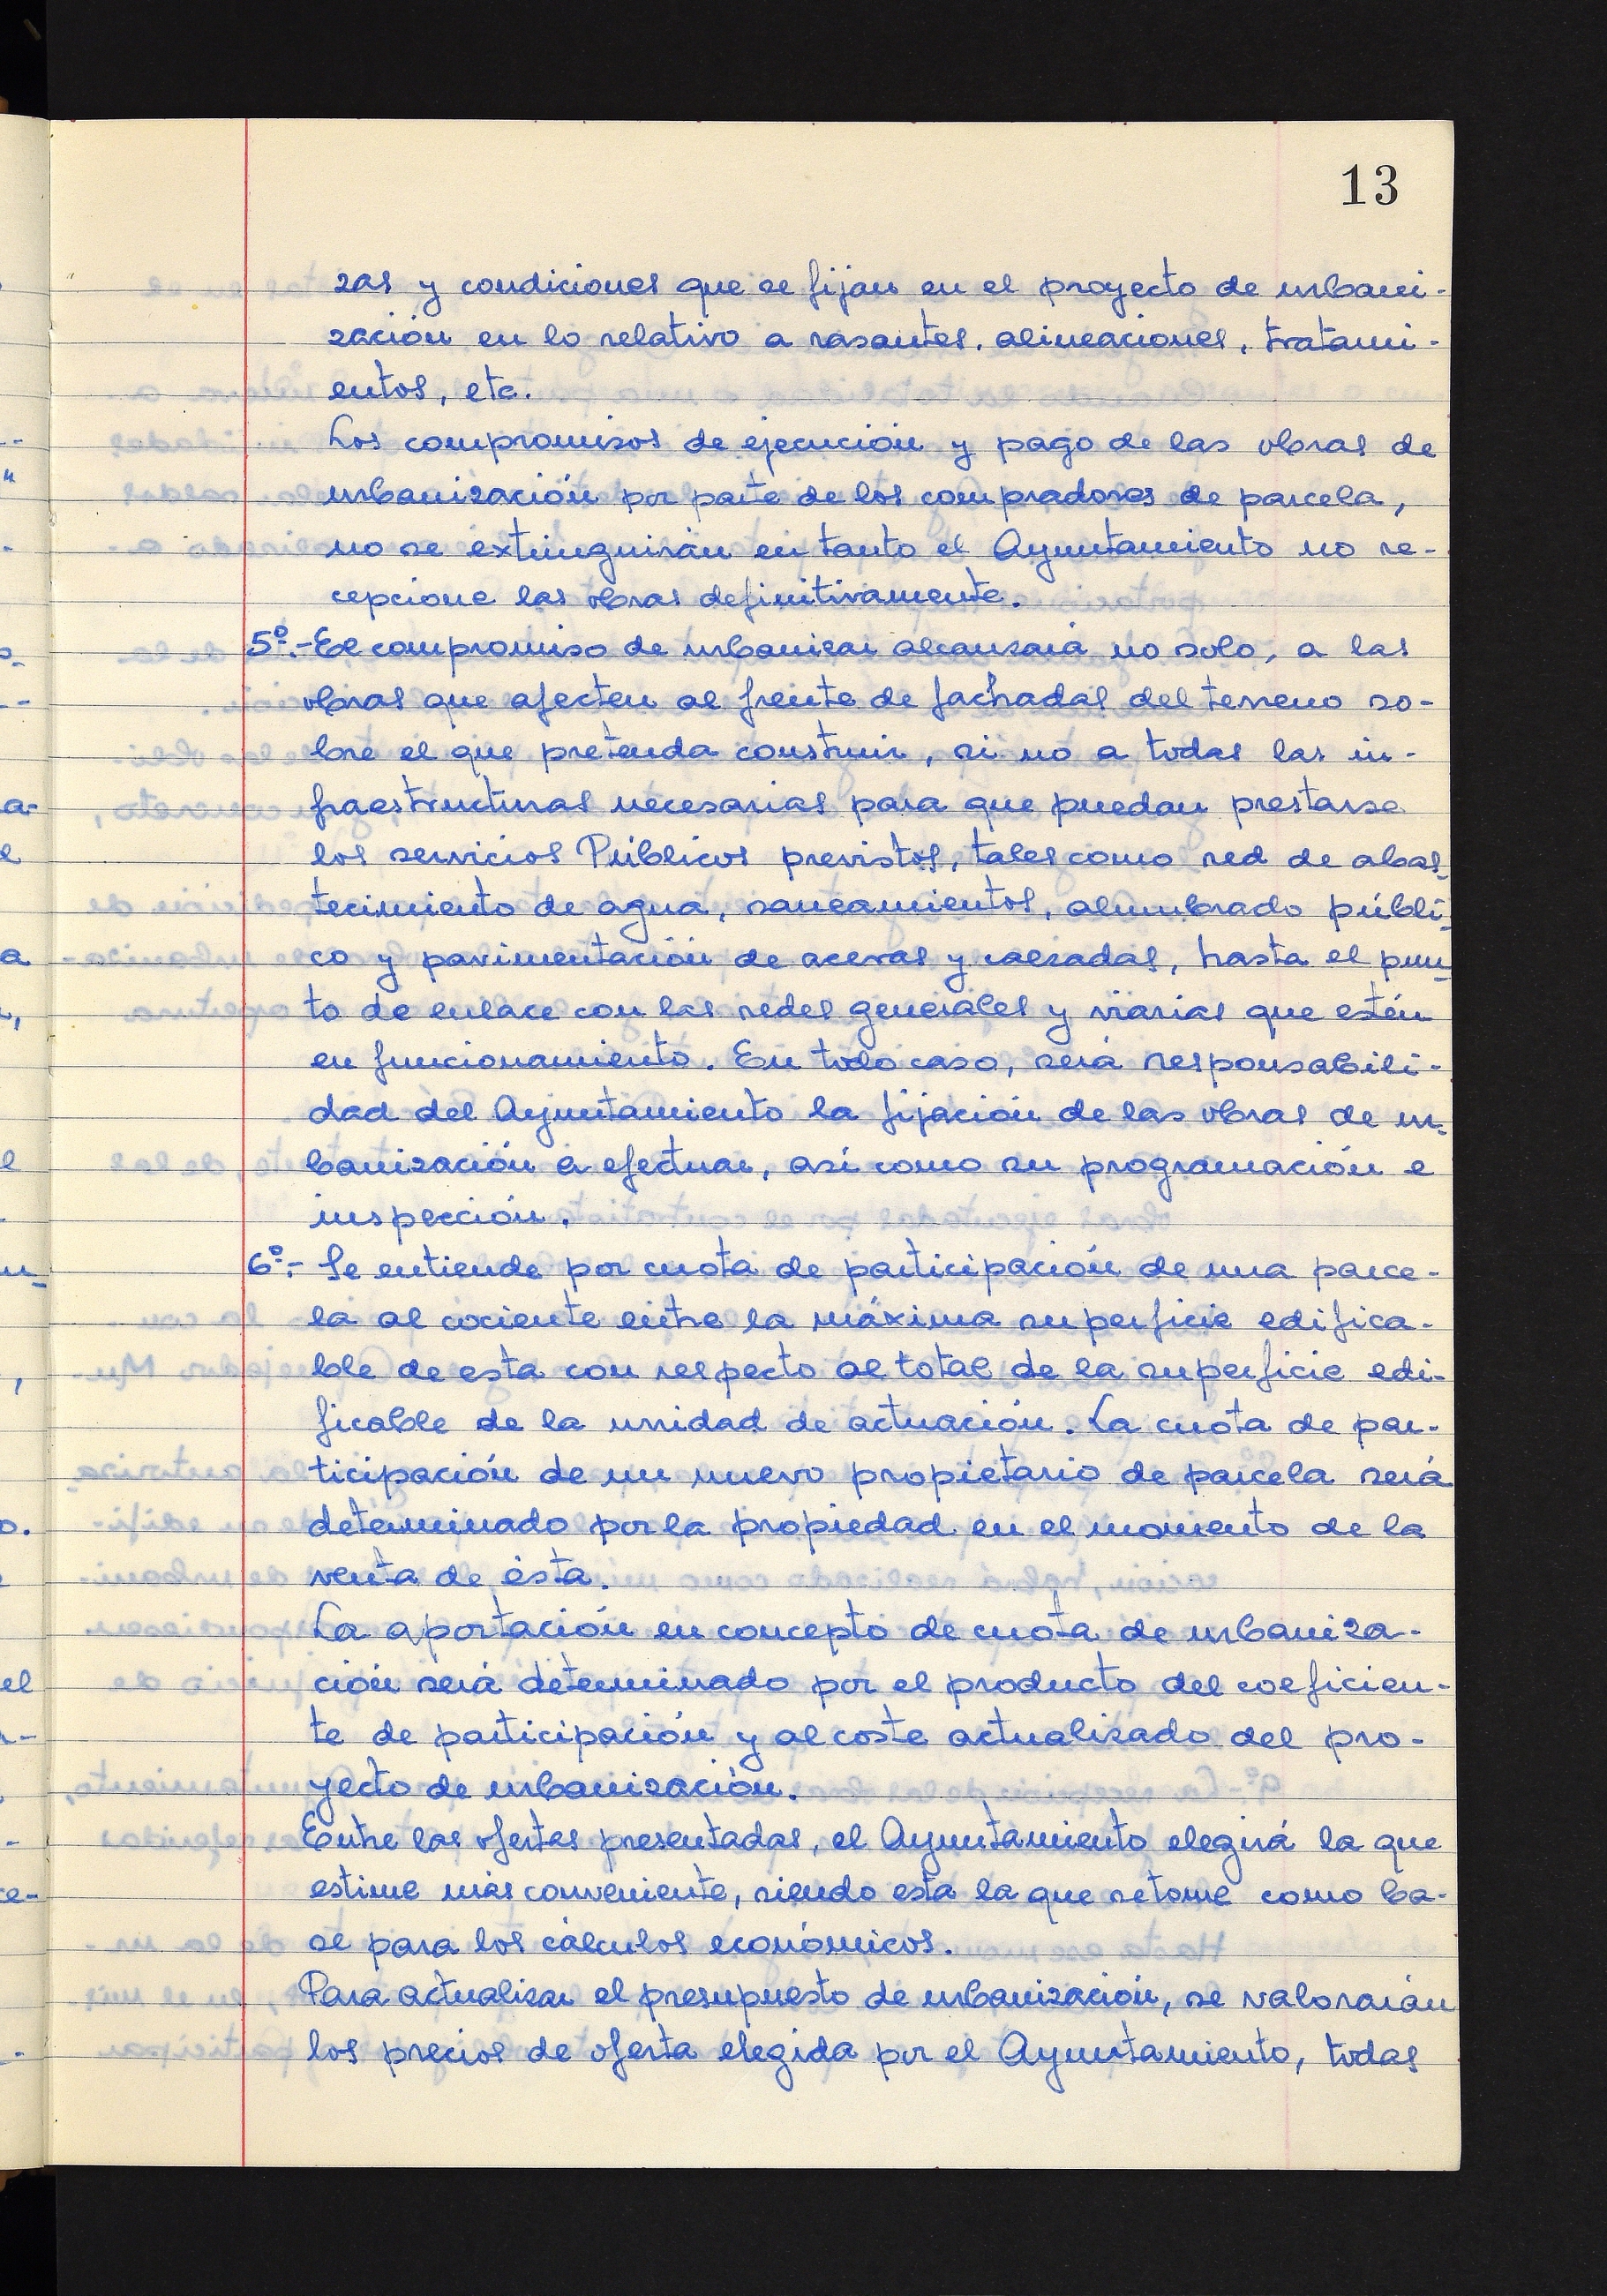 13
zas y condiciones que se fijan en el proyecto de urbani-
zación en lo relativo a rasantes, alineaciones, tratami-
entos, etc.
Los compromisos de ejecución y pago de las obras de
urbanización por parte de los compradores de parcela,
no se extinguirán en tanto el Ayuntamiento no re-
cepcione las obras definitivamente.
5º.- El compromiso de urbanizar alcanzará no solo, a las
obras que afecten al frente de fachadas del terreno so-
bre el que pretenda construir, si no a todas las in-
fraestructuras necesarias para que puedan prestarse
los servicios Públicos previstos, tales como red de abas-
tecimiento de agua, saneamientos, alumbrado públi-
co y pavimentación de aceras y calzadas, hasta el pun-
to de enlace con las redes generales y viarias que estén
en funcionamiento. En todo caso, será responsabili-
dad del Ayuntamiento la fijación de las obras de ur-
banización a efectuar, así como su programación e
inspección.
6º.- Se entiende por cuota de participación de una parce-
la al cociente entre la máxima superficie edifica-
ble de esta con respecto al total de la superficie edi-
ficable de la unidad de actuación. La cuota de par-
ticipación de un nuevo propietario de parcela será
determinado por la propiedad en el momento de la
venta de ésta.
La aportación en concepto de cuota de urbaniza-
ción será determinado por el producto del coeficien-
te de participación y al coste actualizado del pro-
yecto de urbanización.
Entre las ofertas presentadas, el Ayuntamiento elegirá la que
estime más conveniente, siendo esta la que se tome como ba-
se para los cálculos económicos.
Para actualizar el presupuesto de urbanización, se valorarán
los precios de oferta elegida por el Ayuntamiento, todas